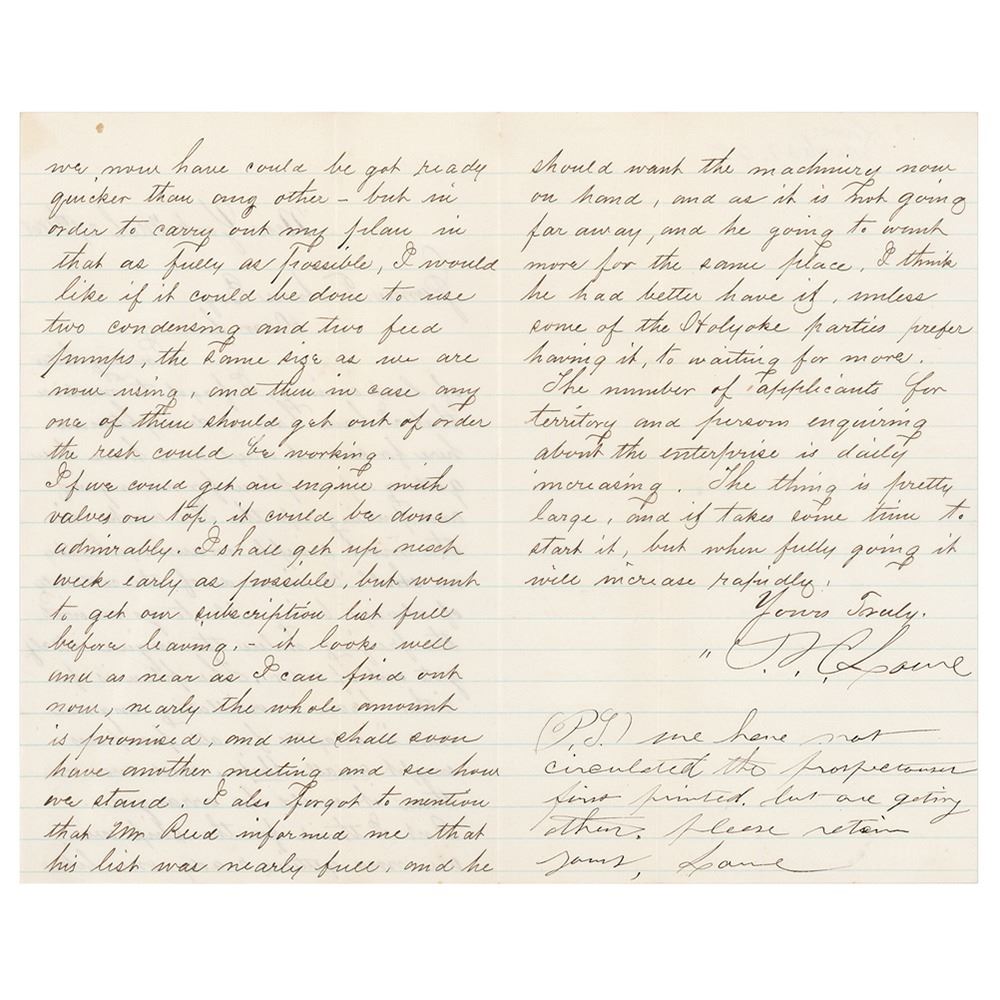 we now have could be got ready
quicker than any other - but in
order to carry out my plan in
that as fully as possible, I would
like if it could be done to use
two condensing and two feed
pumps, the same size as we are
now using, and then in case any
one of them should get out of order
the rest could be working.
If we could get an engine with
valves on top, it could be done
admirably. I shall get up next
week early as possible, but want
to get our subscription list full
before leaving. - it looks well
and as near as I can find out
now, nearly the whole amount
is promised, and we shall soon
have another meeting and see how
we stand. I also forgot to mention
that Mr Reed informed me that
his list was nearly full, and he
should want the machinery now
on hand, and as it is not going
far away, and he going to want
more for the same place, I think
he had better have it, unless
some of the Holyoke parties prefer
having it, to waiting for more.
The number of applicants for
territory and persons enquiring
about the enterprise is daily
increasing. The thing is pretty
large, and it takes some time to
start it, but when fully going it
will increase rapidly.
Yours Truly.
" T. S. C. Lowe
(P.S.) we have not
circulated the prospectuses
first printed. but are geting
others. please retain
yours, Lowe